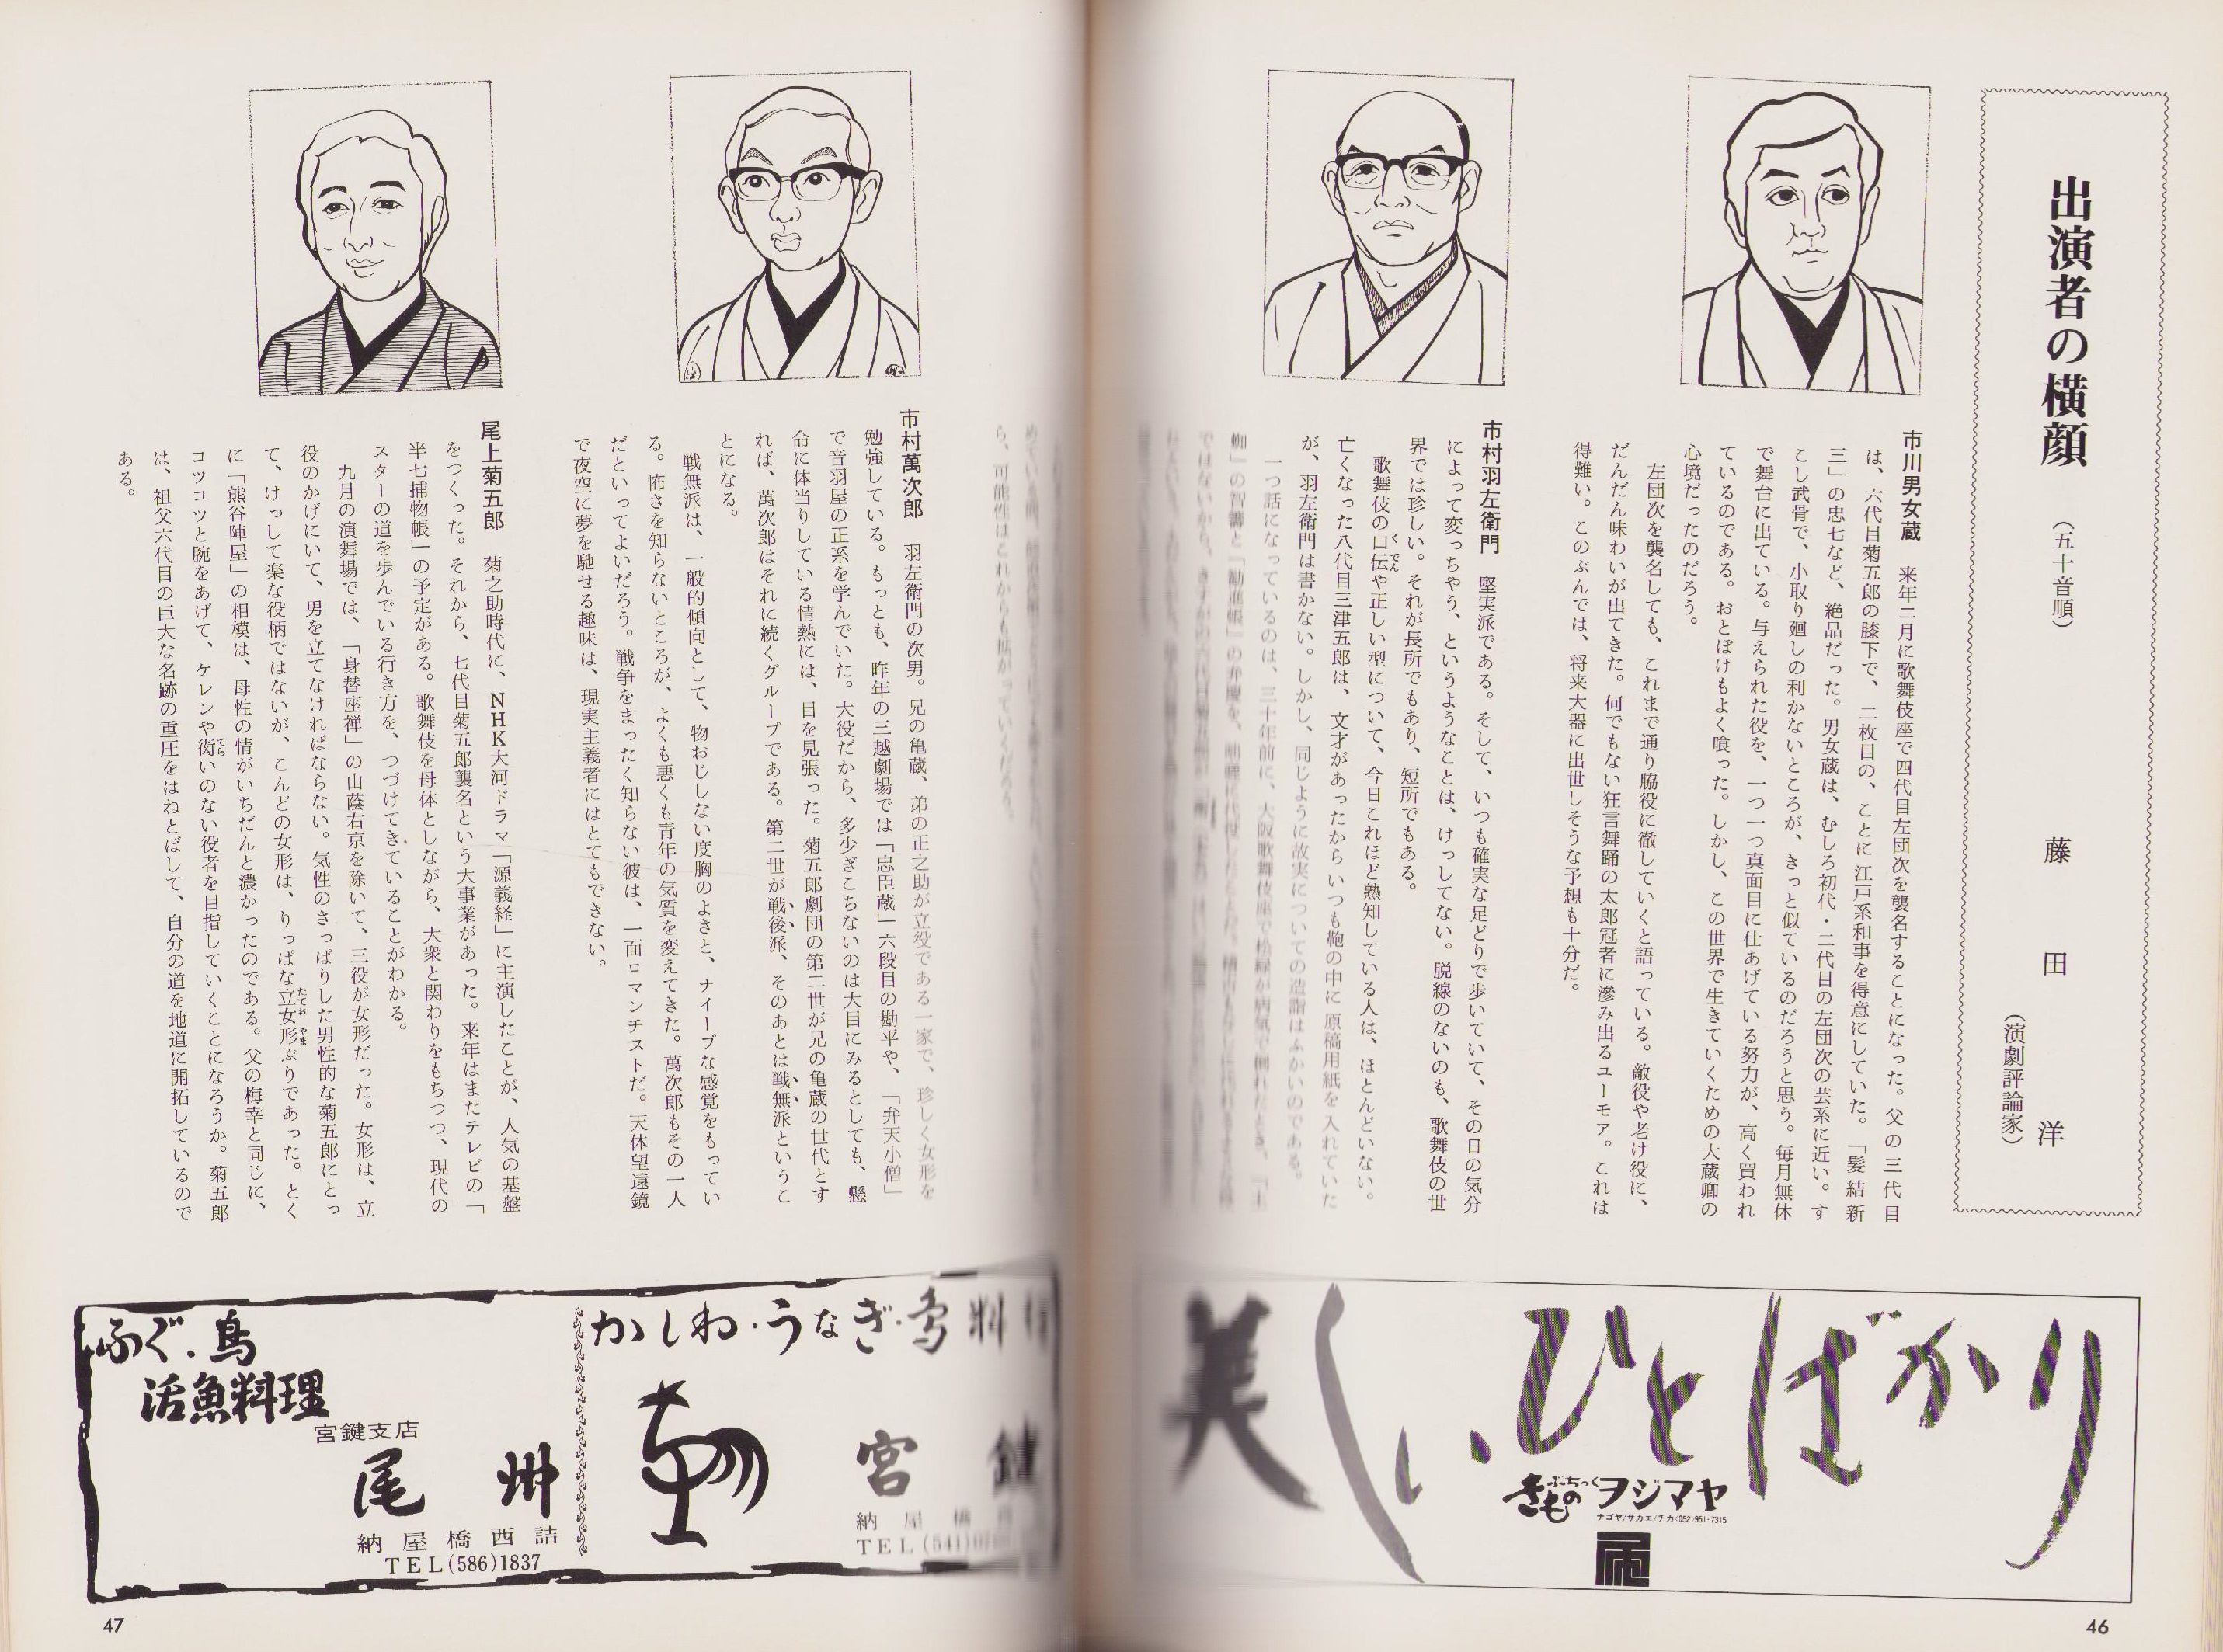 出演者の横顔
（五十音順）
藤田　洋
（演劇評論家）
市川男女蔵　来年二月に歌舞伎座で四代目左団次を襲名することになった。父の三代目
は、六代目菊五郎の膝下で、二枚目の、ことに江戸系和事を得意にしていた。「髪結新
三」の忠七など、絶品だった。男女蔵は、むしろ初代・二代目の左団次の芸系に近い。す
こし武骨で、小取り廻しの利かないところが、きっと似ているのだろうと思う。毎月無休
で舞台に出ている。与えられた役を、一つ一つ真面目に仕あげている努力が、高く買われ
ているのである。おとぼけもよく喰った。しかし、この世界で生きていくための大蔵卿の
心境だったのだろう。
左団次を襲名しても、これまで通り脇役に徹していくと語っている。敵役や老け役に、
だんだん味わいが出てきた。何でもない狂言舞踊の太郎冠者に滲み出るユーモア。これは
得難い。このぶんでは、将来大器に出世しそうな予想も十分だ。
市村羽左衛門　堅実派である。そして、いつも確実な足どりで歩いていて、その日の気分
によって変っちやう、というようなことは、けっしてない。脱線のないのも、歌舞伎の世
界では珍しい。それが長所でもあり、短所でもある。
歌舞伎の口伝や正しい型について、今日これほど熟知している人は、ほとんどいない。
くでん
亡くなった八代目三津五郎は、文才があったからいつも鞄の中に原稿用紙を入れていた
が、羽左衛門は書かない。しかし、同じように故実についての造詣はふかいのである。
一つ話になっているのは、三十年前に、大阪歌舞伎座で松緑が病気で倒れたとき、「土
蜘」の智籌と「勧進帳」の弁慶を、
ら、可能性はこれからも拡がっていくだろう。
市村萬次郎　羽左衛門の次男。兄の亀蔵、弟の正之助が立役である一家で、珍しく女形を
勉強している。もっとも、昨年の三越劇場では「忠臣蔵」六段目の勘平や、「弁天小僧」
で音羽屋の正系を学んでいた。大役だから、多少ぎこちないのは大目にみるとしても、懸
命に体当りしている情熱には、目を見張った。菊五郎劇団の第二世が兄の亀蔵の世代とす
れば、萬次郎はそれに続くグループである。第二世が戦後派、そのあとは戦無派というこ
とになる。
戦無派は、一般的傾向として、物おじしない度胸のよさと、ナイーブな感覚をもってい
る。怖さを知らないところが、よくも悪くも青年の気質を変えてきた。萬次郎もその一人
だといってよいだろう。戦争をまったく知らない彼は、一面ロマンチストだ。天体望遠鏡
で夜空に夢を馳せる趣味は、現実主義者にはとてもできない。
尾上菊五郎　菊之助時代に、NHK大河ドラマ「源義経」に主演したことが、人気の基盤
をつくった。それから、七代目菊五郎襲名という大事業があった。来年はまたテレビの「
半七捕物帳」の予定がある。歌舞伎を母体としながら、大衆と関わりをもちつつ、現代の
スターの道を歩んでいる行き方を、つづけてきていることがわかる。
九月の演舞場では、「身替座禅」の山蔭右京を除いて、三役が女形だった。女形は、立
役のかげにいて、男を立てなければならない。気性のさっぱりした男性的な菊五郎にとっ
て、けっして楽な役柄ではないが、こんどの女形は、りっぱな立女形ぶりであった。とく
たておやま
に「熊谷陣屋」の相模は、母性の情がいちだんと濃かったのである。父の梅幸と同じに、
コツコツと腕をあげて、ケレンや衒いのない役者を目指していくことになろうか。菊五郎
てら
は、祖父六代目の巨大な名跡の重圧をはねとばして、自分の道を地道に開拓しているので
ある。
美しい、ひとばかり
ぶちっく
きもの
ヲジマヤ
ナゴヤ/サカエ/チカ(052)951-7315
46
かしわ・うなぎ・鳥料理
宮鍵
納屋橋
TEL(541)
ふぐ・鳥
活魚料理
宮鍵支店
尾州
納屋橋西詰
TEL(586)1837
47